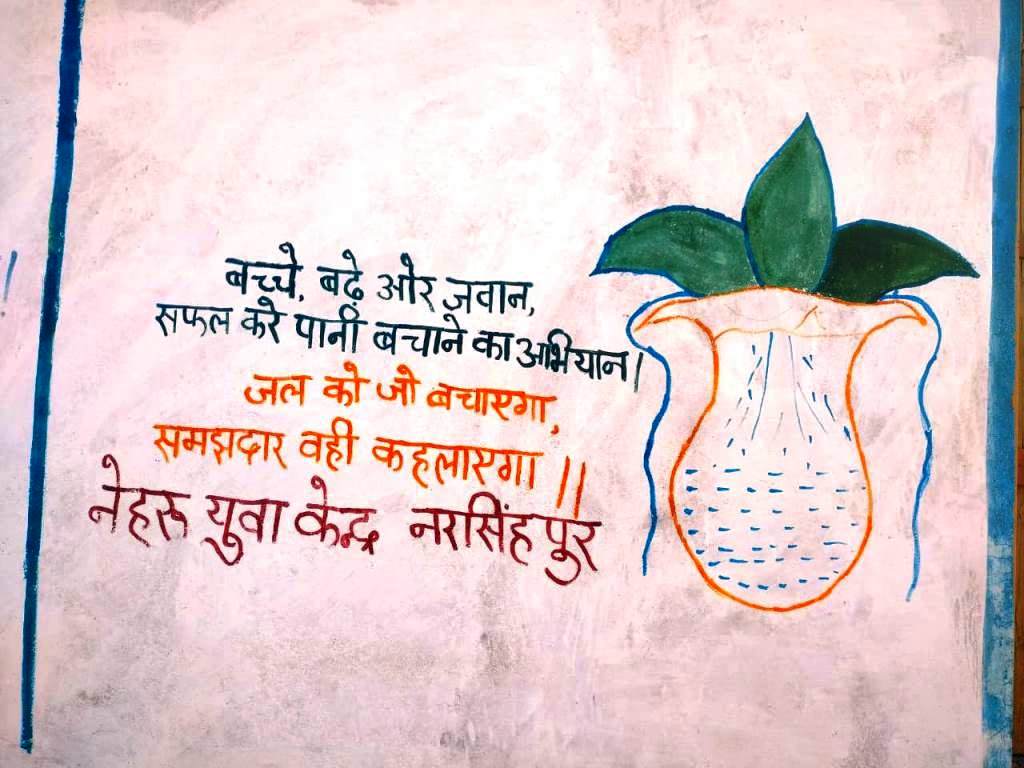 बच्चे, बढ़े ओर ज़वान,
सफल करे पानी बचाने का अभियान।
जल को जो बचाएगा,
समझदार वही कहलाएगा ॥
नेहरू युवा केन्द्र नरसिंहपुर